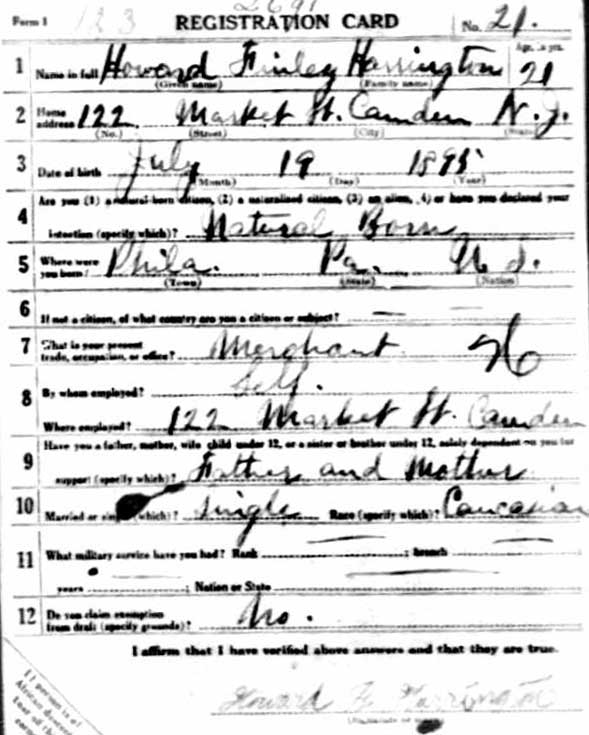 Form 1 123 2691 REGISTRATION CARD No. 21.
1 Name in full Howard Finley Harrington Age, in yrs. 21
(Given name) (Family name)
2 Home address 122 Market St. Camden N.J.
(No.) (Street) (City) (State)
3 Date of birth July 19 1895
(Month) (Day) (Year)
4 Are you (1) a natural-born citizen, (2) a naturalized citizen, (3) an alien, (4) or have you declared your
intention (specify which)? Natural Born
5 Where were you born? Phila. Pa. U.S.
(Town) (State) (Nation)
6 If not a citizen, of what country are you a citizen or subject?
7 What is your present trade, occupation, or office? Merchant 26
8 By whom employed? Self.
Where employed? 122 Market St. Camden
9 Have you a father, mother, wife, child under 12, or a sister or brother under 12, solely dependent on you for
support (specify which)? Father and Mother
10 Married or single (which)? Single Race (specify which)? Caucasian
11 What military service have you had? Rank ; branch
years ; Nation or State
12 Do you claim exemption from draft (specify grounds)? No.
I affirm that I have verified above answers and that they are true.
Howard F. Harrington
If person is of
African descent